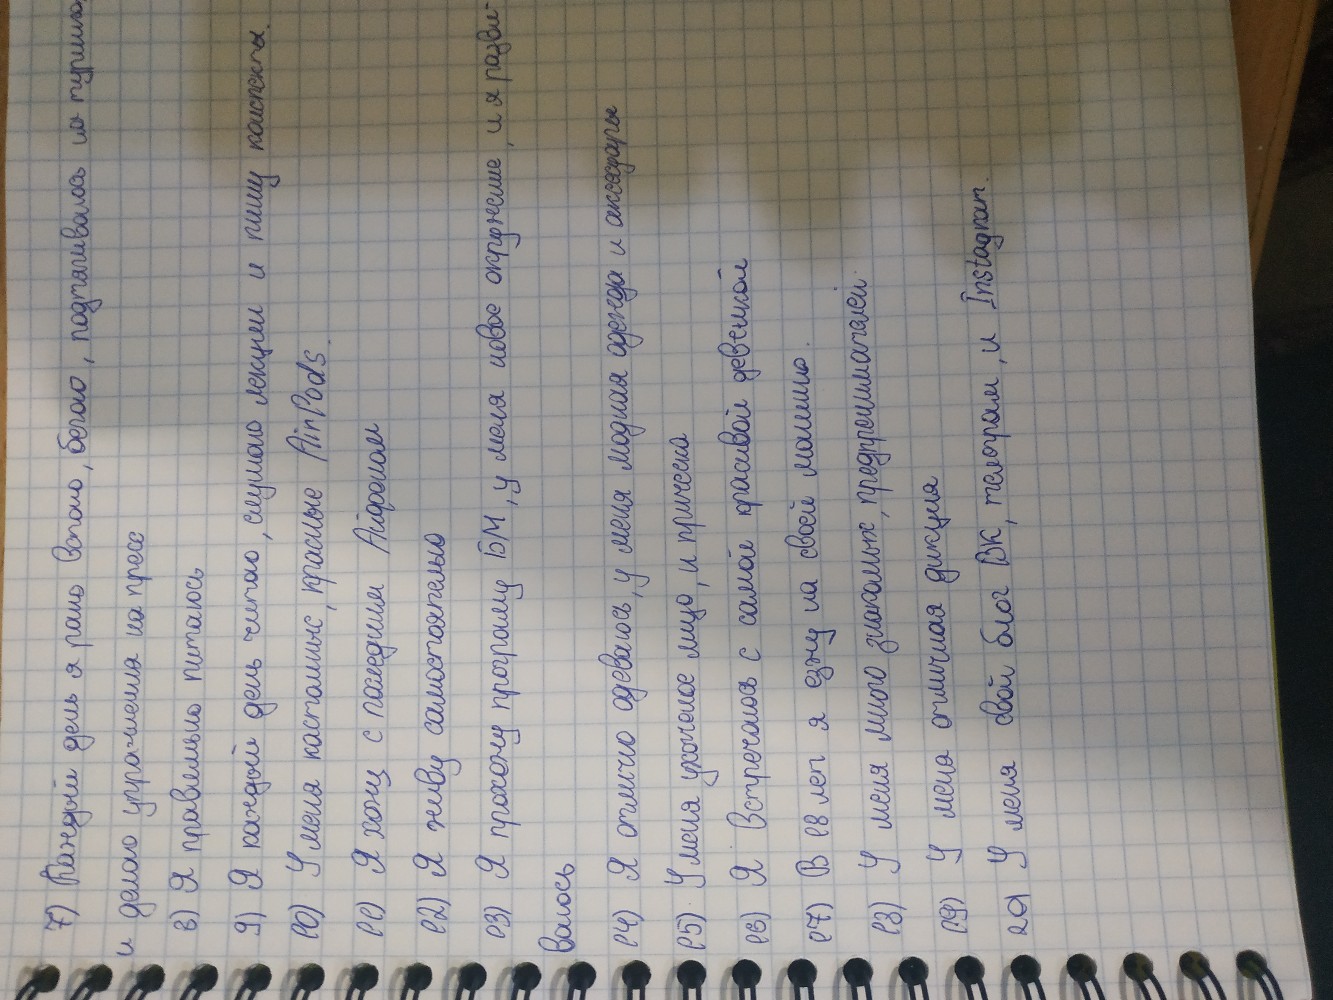 7) Каждый день я рано встаю, бегаю, подтягиваюсь на турнике,
и делаю упражнения на пресс
8) Я правильно питаюсь
9) Я каждый день читаю, слушаю лекции и пишу конспекты.
10) У меня кастомные, красные AirPods.
11) Я хожу с последним Айфоном
12) Я живу самостоятельно
13) Я прохожу програму БМ, у меня новое окружение, и я разви-
ваюсь
14) Я отлично одеваюсь, у меня модная одежда и аксесуары
15) У меня ухоженое лицо, и прическа
16) Я встречаюсь с самой красивой девушкой
17) В 18 лет я езжу на своей машине.
18) У меня много знакомых, предпренимателей.
19) У меня отличная дикция
20) У меня свой блог ВК, телеграм, и Instagram.